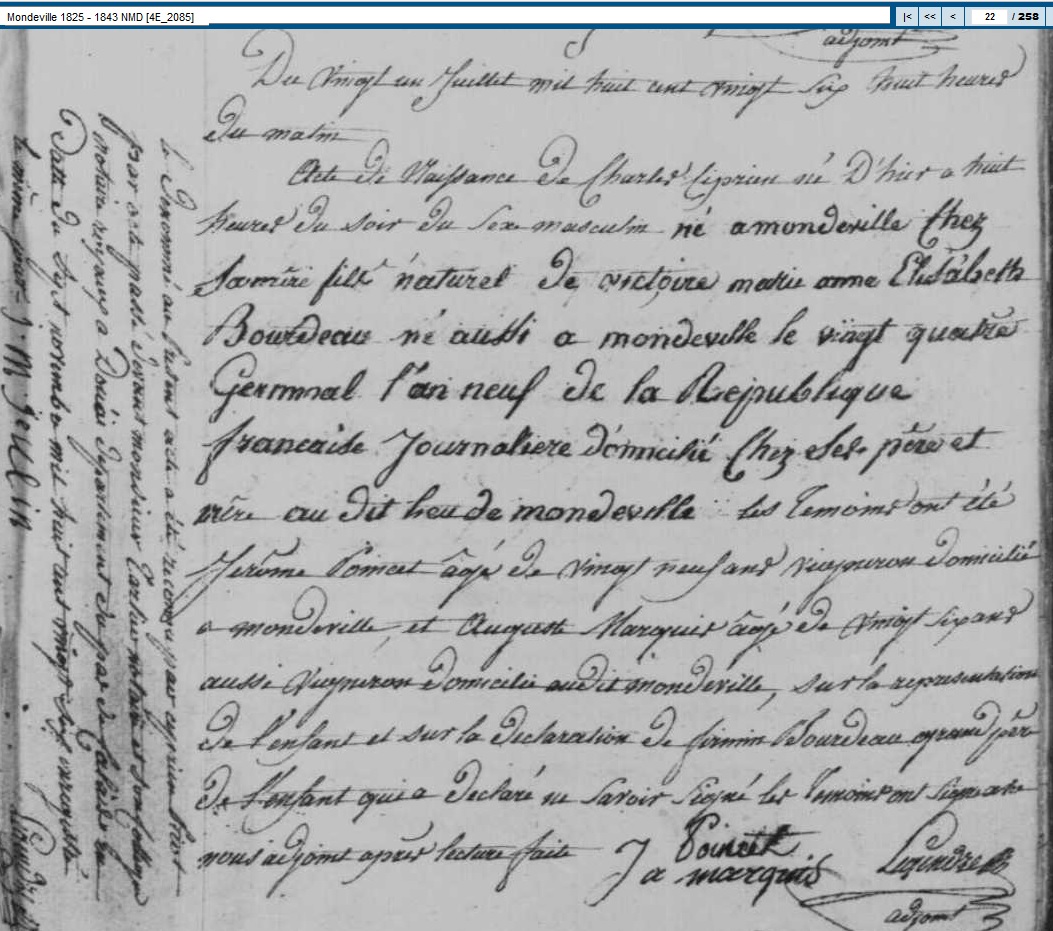 Mondeville 1825 - 1843 NMD [4E_2085]
|< << < 22 / 258
adjoint
Du vingt un Juillet mil huit cent vingt six huit heures
du matin
Acte de Naissance de Charles Ciprien né D'hier a huit
heures du soir du sexe masculin né a mondeville Chez
sa mère fils naturel de victoire marie anne Elisabeth
Bourdeau né aussi a mondeville le vingt quatre
Germinal l'an neuf de la Republique
francaise Journaliere domicilié Chez ses père et
mère au dit lieu de mondeville les Temoins ont été
Jerôme Poincet âgé de vingt neuf ans vigneron domicilié
a mondeville, et Auguste Marquis âgé de vingt six ans
aussi vigneron domicilié audit mondeville, sur la representation
de l'enfant et sur la declaration de firmin Bourdeau grand père
de L'enfant qui a declaré ne savoir signé les Temoins ont signé avec
nous adjoint après lecture faite
J Poincet
a marquis
Legendre
adjoint
le Denommé au présent acte a été reconnu par cyprien
par acte passé devant monsieur notaire et son collegue
notaire royaux a Douai département du pas de Calais en
Datte du sept novembre mil huit cent vingt six enregistré
le même jour